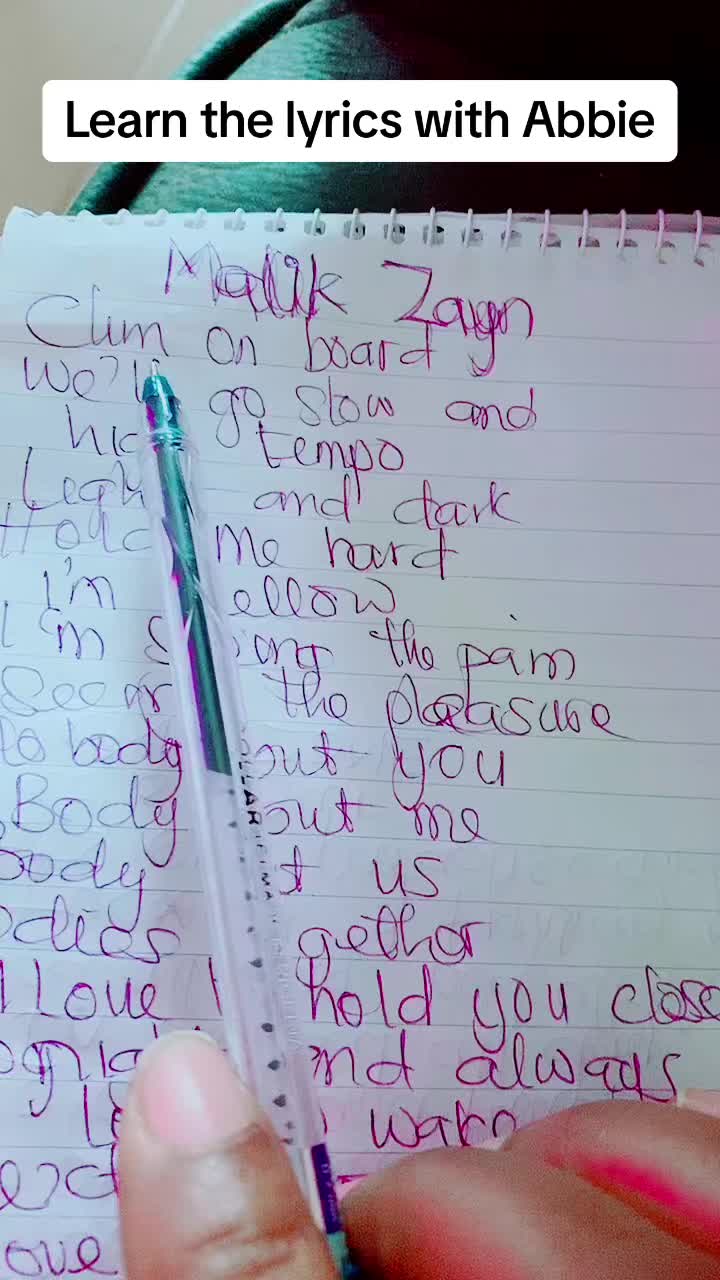 Learn the lyrics with Abbie
Malik Zayn
Clim on board
We'll go slow and
tempo
and dark
Hold me hard
I'm ellow
I'm the pain
the pleasure
body out you
Body out me
body t us
gether
Love hold you close
and always
wake
ove